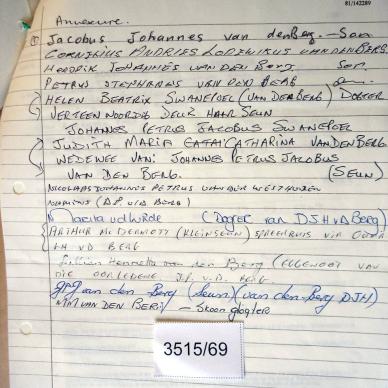 81/142289
Annexure.
① Jacobus Johannes van den Berg. — Son
CORNELIUS ANDRIES LODEWIKUS VAN DEN BERG.
HENDRIK JOHANNES VAN DEN BERG Son.
PETRUS STEPHANUS VAN DEN BERG
HELEN BEATRIX SWANEPOEL (VAN DEN BERG) DOGTER
VERTEENWOORDIG DEUR HAAR SEUN
JOHANNES PETRUS JACOBUS SWANEPOEL
JUDITH MARIA CATHARINA VAN DEN BERG
WEDEWEE VAN: JOHANNES PETRUS JACOBUS
VAN DEN BERG. (SEUN)
NICOLAAS JOHANNES PETRUS VAN DER WESTHUIZEN
(Dogter van DJH vd Berg)
ARTHUR McDERMOTT (KLEINSEUN)
VD BERG
van den Berg (EGGENOOT VAN
DIE OORLEDENE J.P. v.d. BERG.
van den Berg (Seun) (van den Berg DJH)
VAN DEN BERG — Skoondogter
3515/69